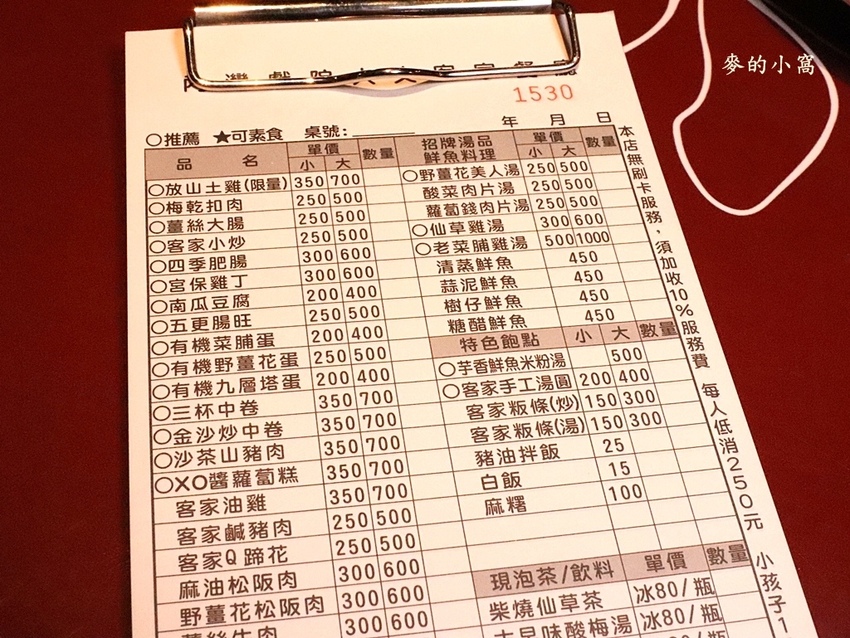 灣戲院 客家餐廳
1530
年 月 日
○推薦 ★可素食 桌號：
品 名 單價 小 大 數量
○放山土雞(限量) 350 700
○梅乾扣肉 250 500
○薑絲大腸 250 500
○客家小炒 250 500
○四季肥腸 300 600
○宮保雞丁 300 600
○南瓜豆腐 200 400
○五更腸旺 250 500
○有機菜脯蛋 200 400
○有機野薑花蛋 250 500
○有機九層塔蛋 200 400
○三杯中卷 350 700
○金沙炒中卷 350 700
○沙茶山豬肉 350 700
○XO醬蘿蔔糕 350 700
客家油雞 350 700
客家鹹豬肉 250 500
客家Q蹄花 250 500
麻油松阪肉 300 600
野薑花松阪肉 300 600
薑絲牛肉 300 600
招牌湯品
鮮魚料理 單價 小 大 數量
○野薑花美人湯 250 500
酸菜肉片湯 250 500
蘿蔔錢肉片湯 250 500
○仙草雞湯 300 600
○老菜脯雞湯 500 1000
清蒸鮮魚 450
蒜泥鮮魚 450
樹仔鮮魚 450
糖醋鮮魚 450
特色飽點 小 大 數量
○芋香鮮魚米粉湯 500
○客家手工湯圓 200 400
客家粄條(炒) 150 300
客家粄條(湯) 150 300
豬油拌飯 25
白飯 15
麻糬 100
現泡茶/飲料 單價 數量
柴燒仙草茶 冰80/瓶
古早味酸梅湯 冰80/瓶
本店無刷卡服務，須加收10%服務費 每人低消250元 小孩子1
麥的小窩